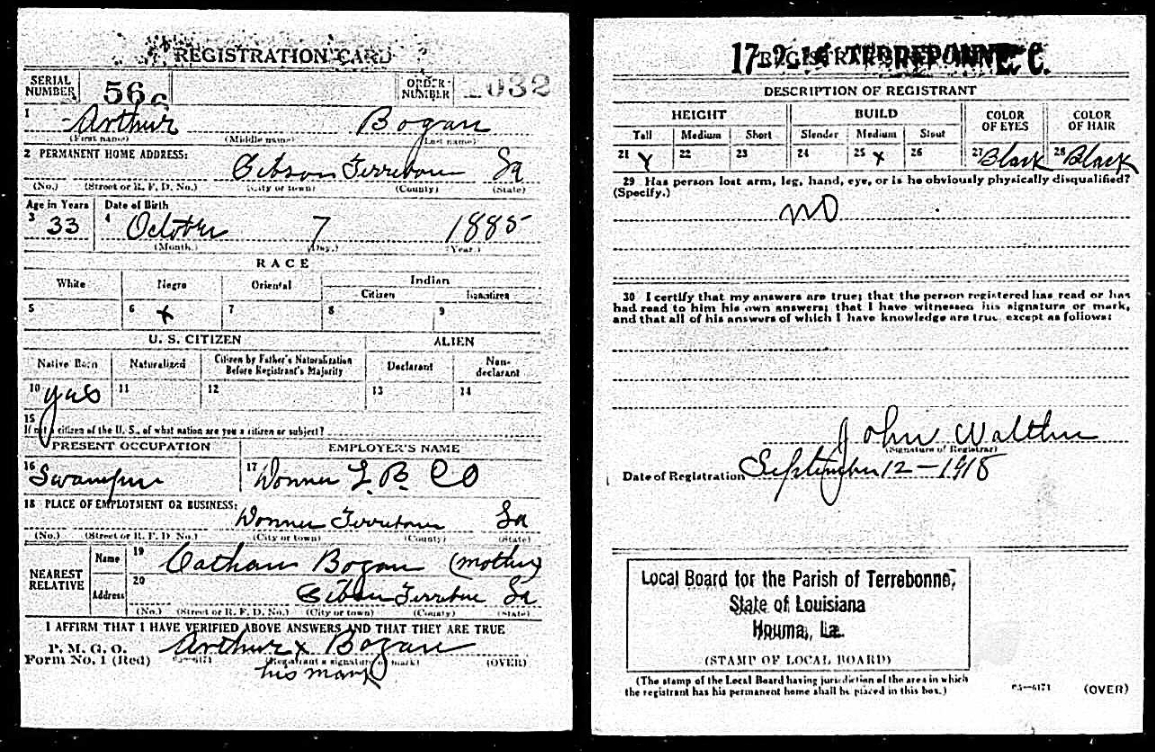 REGISTRATION CARD
SERIAL NUMBER 566 ORDER NUMBER 1032
1 Arthur Bogan
(First name) (Middle name) (Last name)
2 PERMANENT HOME ADDRESS:
Gibson Terrebonne La
(No.) (Street or R. F. D. No.) (City or town) (County) (State)
Age in Years Date of Birth
3 33 4 October 7 1885
(Month.) (Day.) (Year.)
RACE
White Negro Oriental Indian
Citizen Noncitizen
5 6 x 7 8 9
U. S. CITIZEN ALIEN
Native Born Naturalized Citizen by Father's Naturalization Before Registrant's Majority Declarant Non-declarant
10 yes 11 12 13 14
15
If not a citizen of the U. S., of what nation are you a citizen or subject?
PRESENT OCCUPATION EMPLOYER'S NAME
16 Swamper 17 Donner L. B. CO
18 PLACE OF EMPLOYMENT OR BUSINESS:
Donner Terrebonne La
(No.) (Street or R. F. D. No.) (City or town) (County) (State)
NEAREST RELATIVE
Name 19 Bogan (mother)
Address 20 Gibson Terrebonne La
(No.) (Street or R. F. D. No.) (City or town) (County) (State)
I AFFIRM THAT I HAVE VERIFIED ABOVE ANSWERS AND THAT THEY ARE TRUE
P. M. G. O.
Form No. 1 (Red)
Arthur x Bogan
(Registrant's signature or mark) (OVER)
his mark
REGISTRAR'S REPORT
17-2-16 TERREBONNE C.
DESCRIPTION OF REGISTRANT
HEIGHT BUILD COLOR OF EYES COLOR OF HAIR
Tall Medium Short Slender Medium Stout
21 x 22 23 24 25 x 26 27 Black 28 Black
29 Has person lost arm, leg, hand, eye, or is he obviously physically disqualified?
(Specify.)
no
30 I certify that my answers are true; that the person registered has read or has
had read to him his own answers; that I have witnessed his signature or mark,
and that all of his answers of which I have knowledge are true, except as follows:
John Walther
(Signature of Registrar)
Date of Registration September 12-1918
Local Board for the Parish of Terrebonne,
State of Louisiana
Houma, La.
(STAMP OF LOCAL BOARD)
(The stamp of the Local Board having jurisdiction of the area in which
the registrant has his permanent home shall be placed in this box.)
03-6171 (OVER)